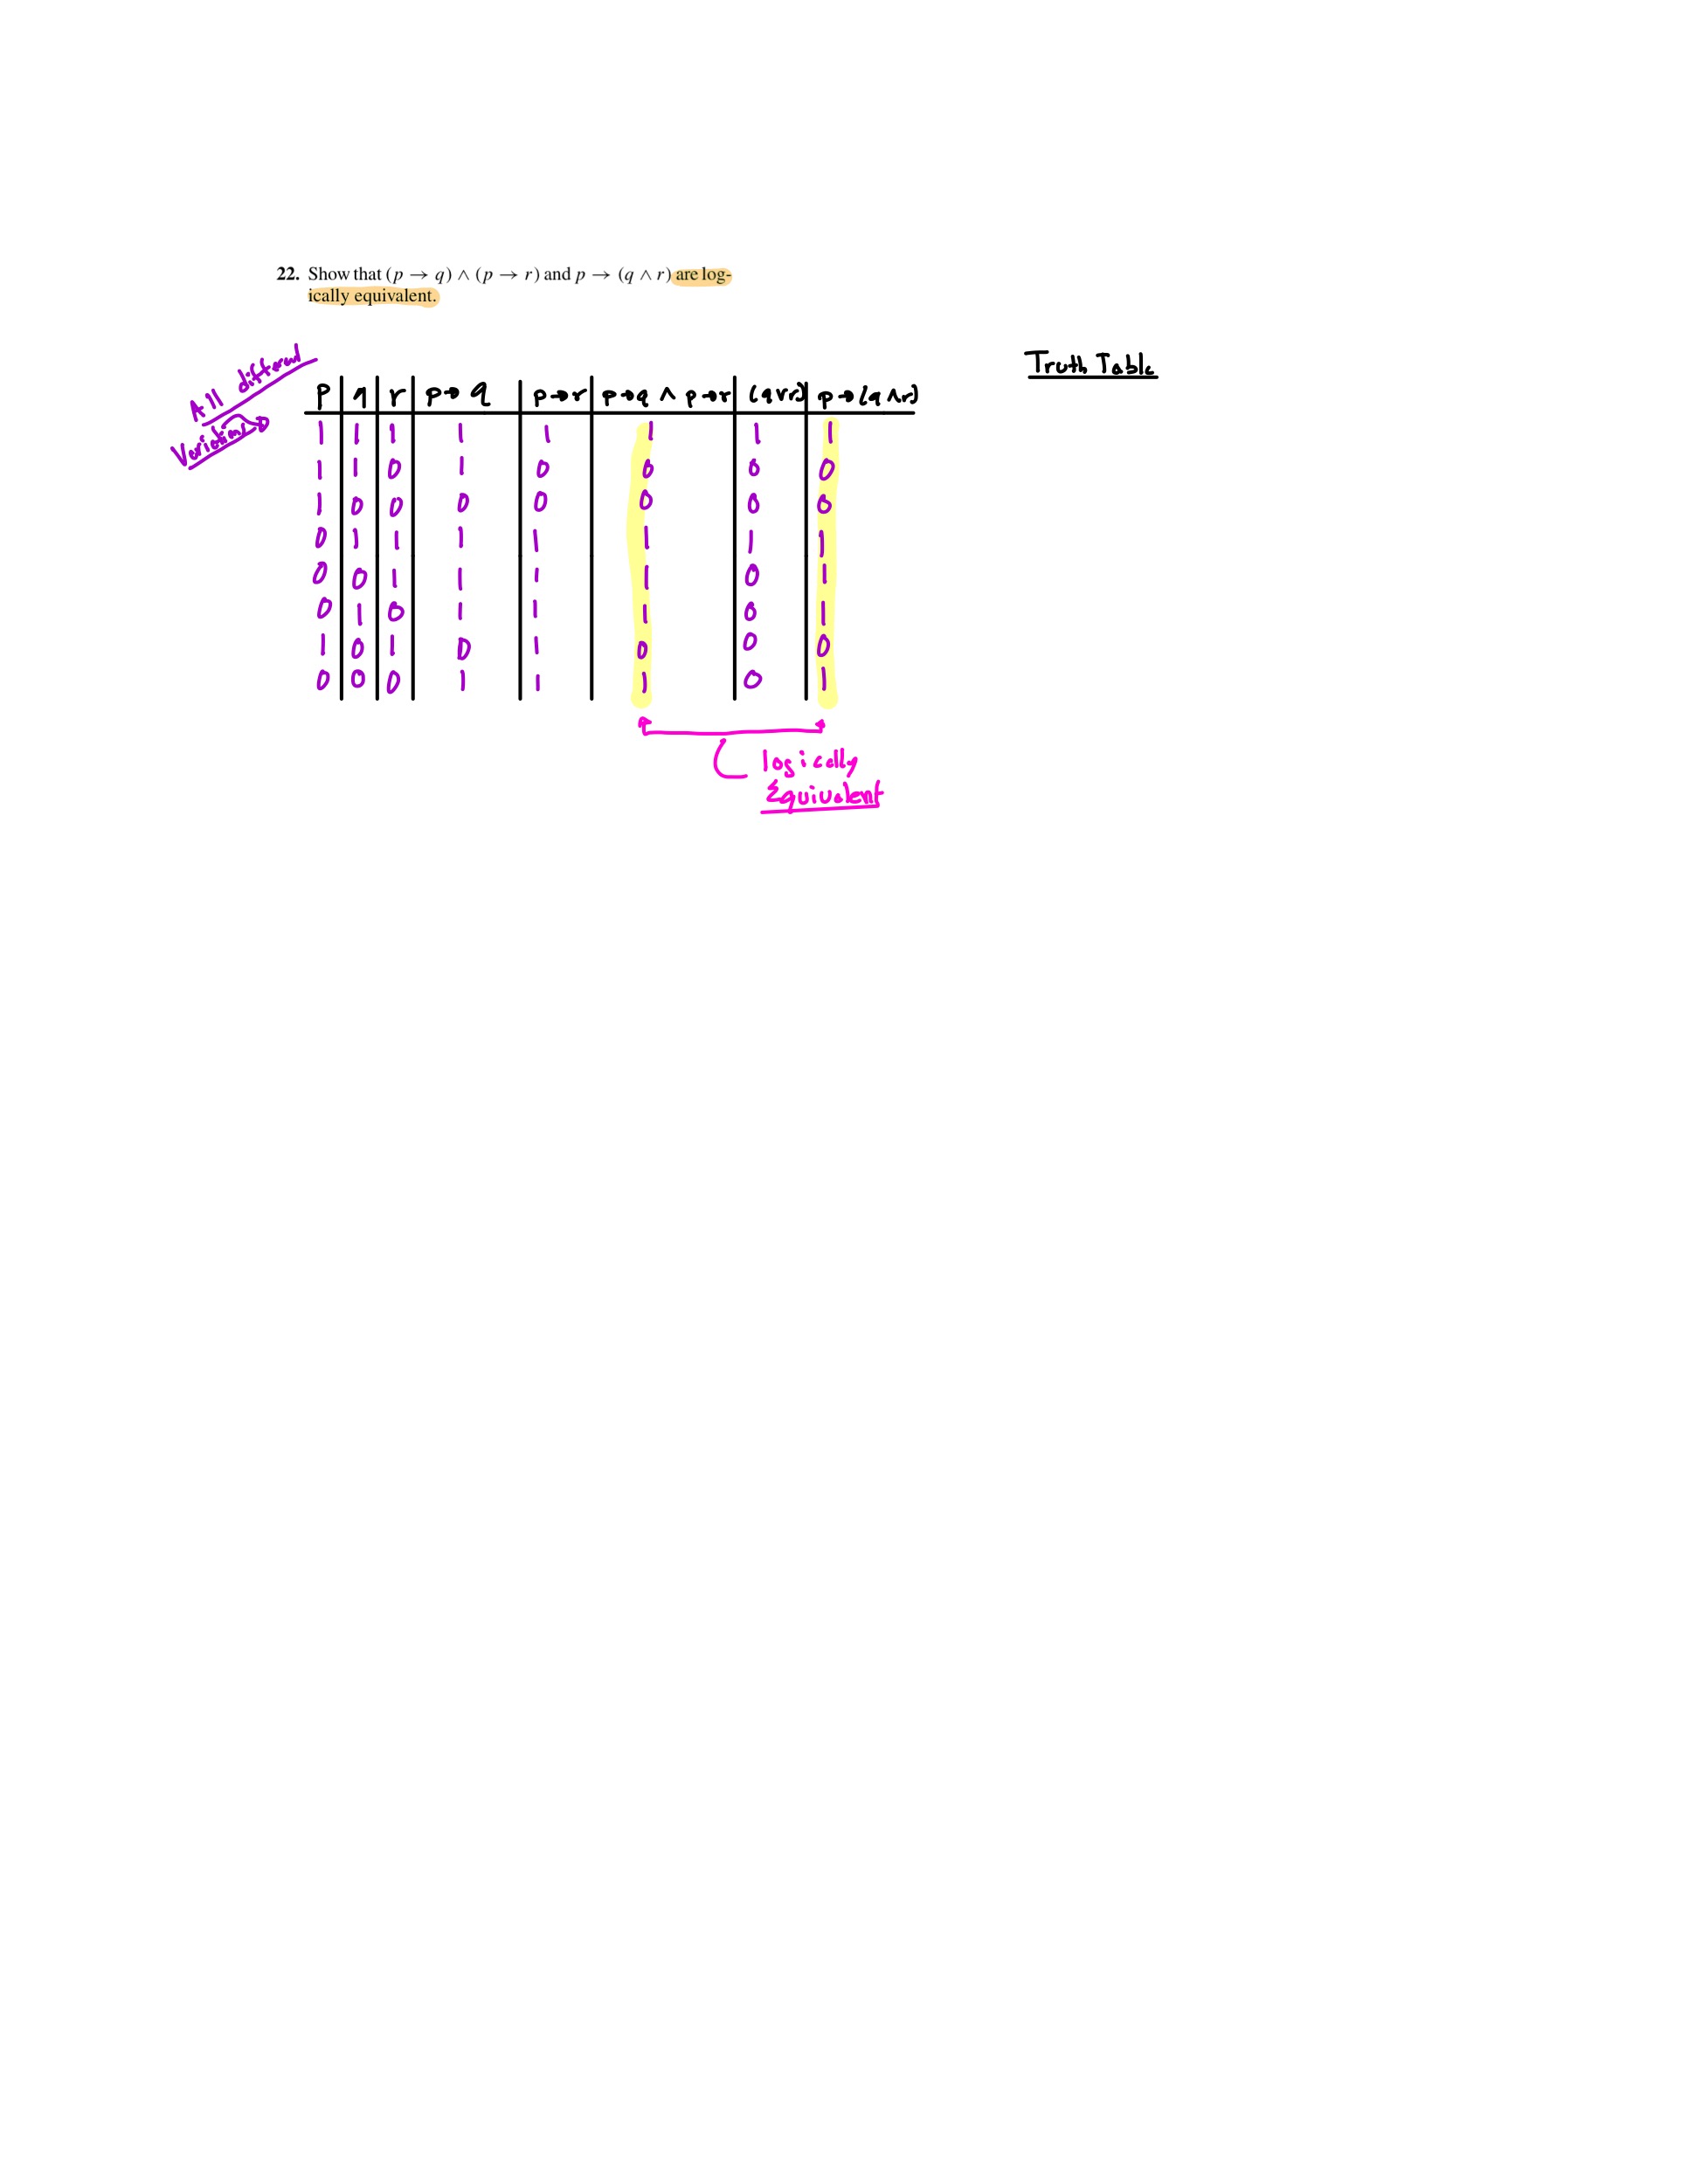 22. Show that (p → q) ∧ (p → r) and p → (q ∧ r) are log-
ically equivalent.
Truth Table
All different
Variations
p q r p→q p→r p→q ∧ p→r (q∨r) p→(q∧r)
1 1 1 1 1 1 1 1
1 1 0 1 0 0 0 0
1 0 0 0 0 0 0 0
0 1 1 1 1 1 1 1
0 0 1 1 1 1 0 1
0 1 0 1 1 1 0 1
1 0 1 0 1 0 0 0
0 0 0 1 1 1 0 1
logically
Equivalent